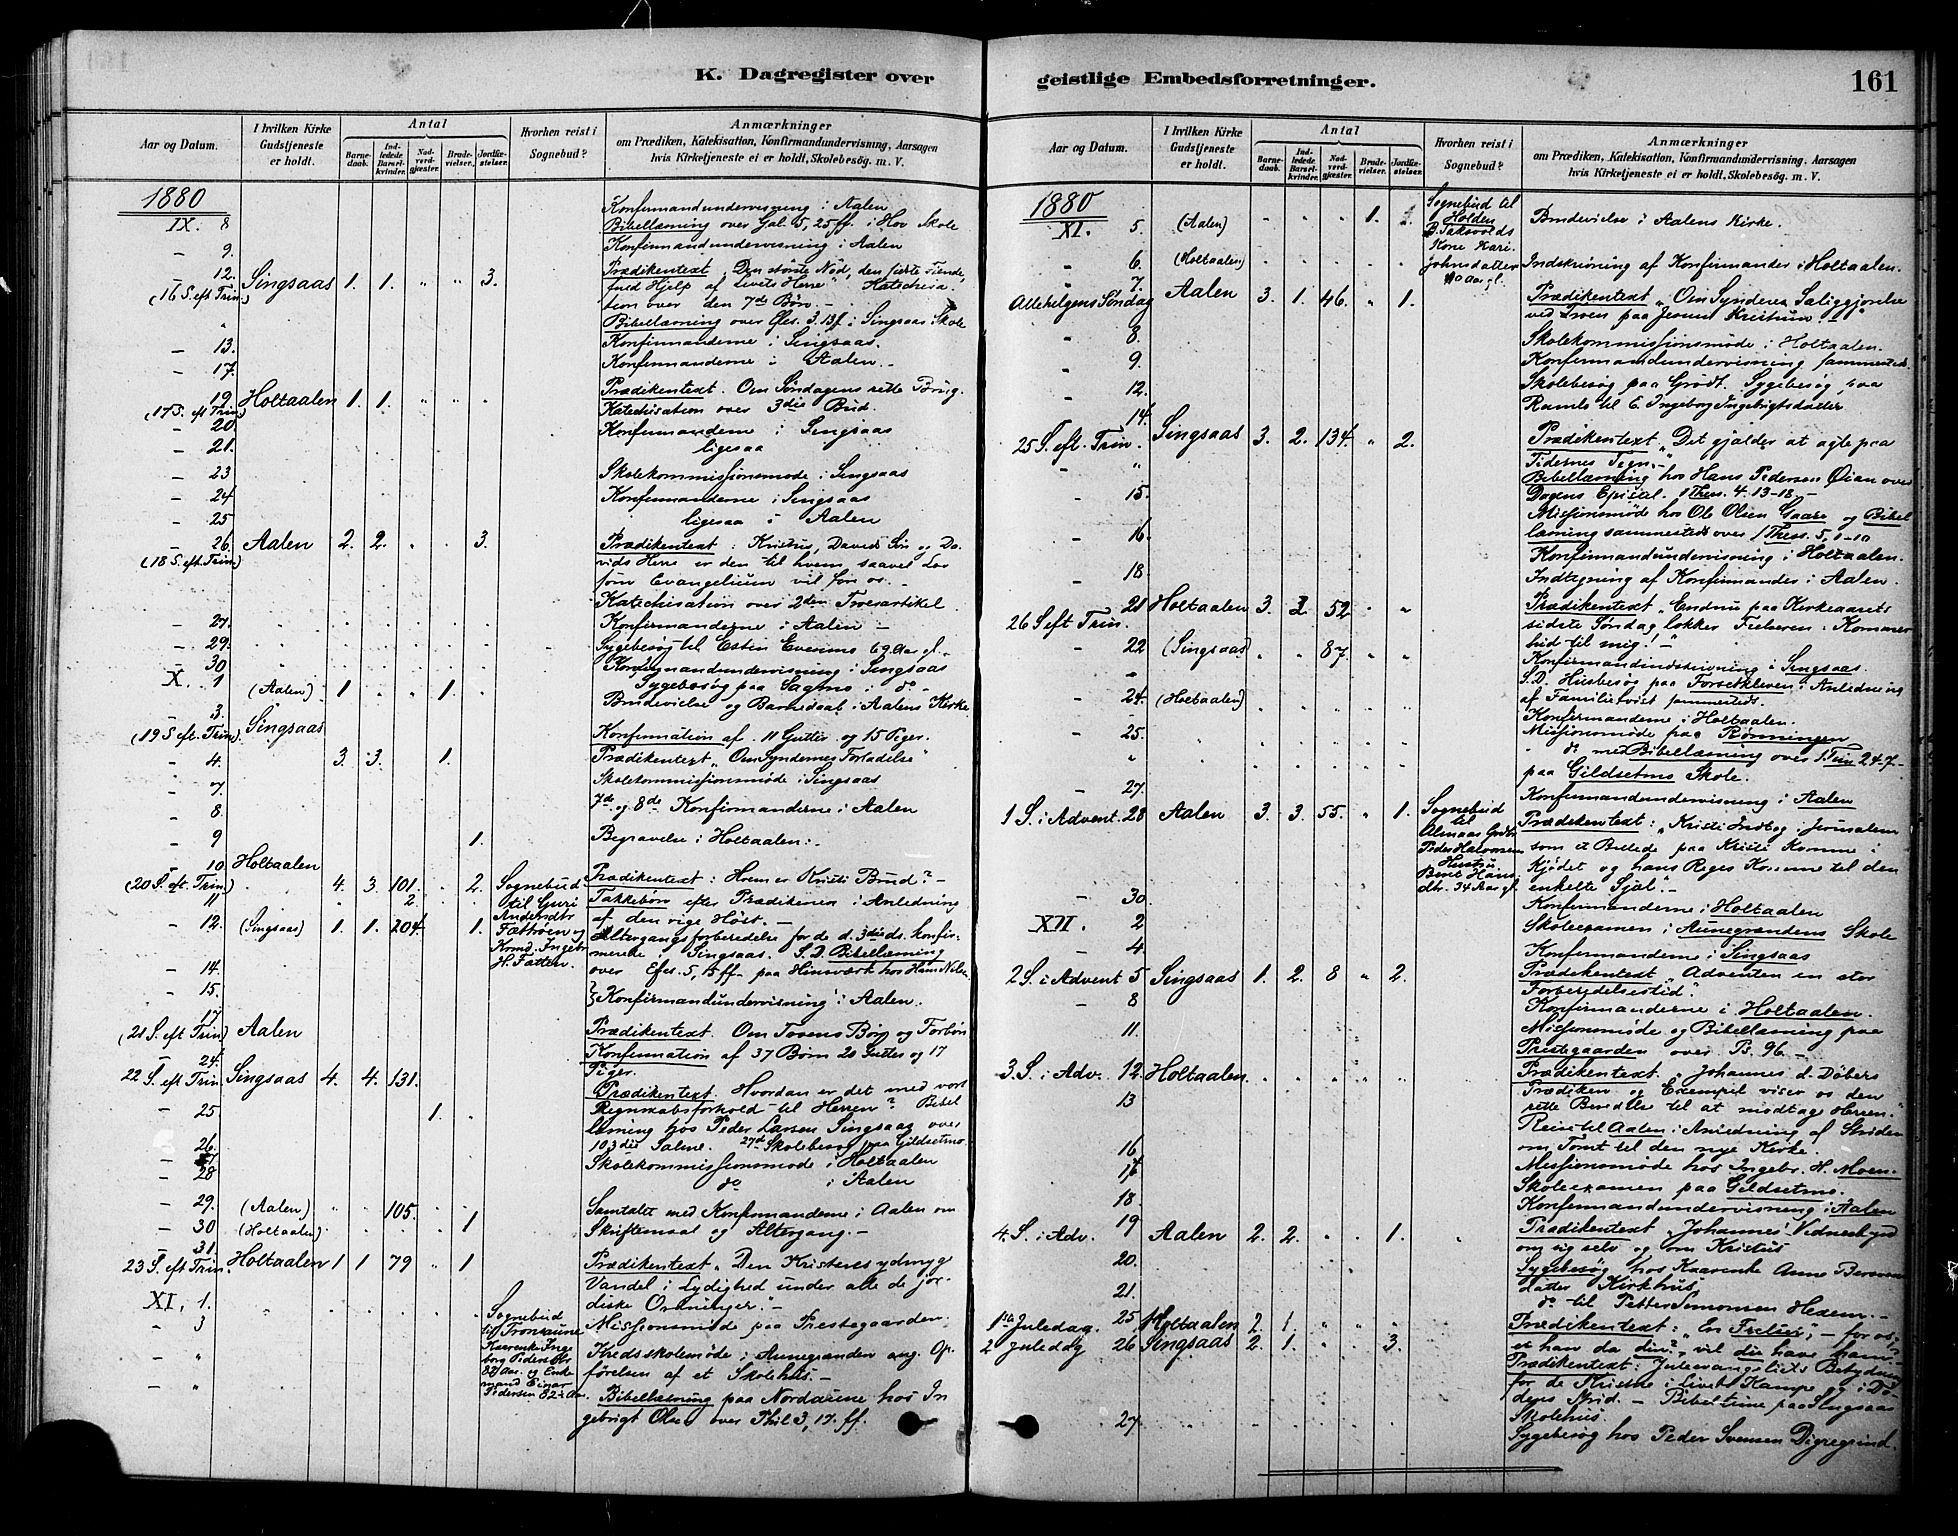 K. Dagregister over
Aar og Datum.
I hvilken Kirke Gudstjeneste er holdt.
Antal
Barnedaab.
Indledede Barselkvinder.
Nadverdgjester.
Brudevielser.
Jordfæstelser.
Hvorhen reist i Sognebud?
Anmærkninger
om Prædiken, Katekisation, Konfirmandundervisning, Aarsagen
hvis Kirketjeneste ei er holdt, Skolebesøg. m. V.
1880
IX. 8 Konfirmandundervisning i Aalen
Bibellæsning over Gal. 5, 25 ff. i Hov Skole
- 9. Konfirmandundervisning i Aalen
- 12. (16 S. eft. Trin.) Singsaas 1. 1. " " 3. Prædikentext „Den største Nød, den sidste Fiende,
med Hjelp af Livets Herre" Katechisa
tion over den 7de Bøn.-
" Bibellæsning over Efes. 3. 13 f. i Singsaas Skole
- 13. Konfirmanderne i Singsaas.
- 17. Konfirmanderne i Aalen.-
19. (17 S. eft Trin) Holtaalen 1. 1. " " " Prædikentext. Om Søndagens rette Brug.
Katechisation over 3die Bud.
- 20 Konfirmanderne i Singsaas
- 21. ligesaa
- 23 Skolekommissionsmøde i Singsaas
- 24 Konfirmanderne i Singsaas
- 25 ligesaa i Aalen
- 26. (18 S. eft. Trin.) Aalen 2. 2. " " 3. Prædikentext: Kristus, Davids Søn og Da
vids Herre er den til hvem saavel Lov
som Evangelium vil føre os.-
Katechisation over 2den Troesartikel
- 27. Konfirmanderne i Aalen -
- 29. Sygebesøg til Estin Evensmo 69 Aar gl.-
- 30 Konfirmandundervisning i Singsaas
X. 1 (Aalen) 1 " " 1. Sygebesøg paa Sagmo i do -
Brudevielse og Barnedaab i Aalens Kirke
- 3. (19 S. eft. Trin.) Singsaas Konfirmation af 11 Gutter og 15 Piger.
- 4. 3. 3. 1. Prædikentext „Om Syndernes Forladelse"
- 7. Skolekommissionsmøde i Singsaas
- 8 7de og 8de Konfirmanderne i Aalen
- 9 1. Begravelse i Holtaalen.-
- 10 (20 S. eft. Trin.) Holtaalen 4. 3. 101. 2. Sognebud Prædikentext: Hvem er Kristi Brud?-
11 2. til Guri Takkebøn efter Prædikenen i Anledning
af den rige Høst.-
- 12. (Singsaas) 1. 1. 204. 1. Andersdtr Fættroen og Altergangsforberedelse for de d. 3die ds. konfir-
merede Singsaas. S. D. Bibellæsning
- 14. H. Fatten. over Efes. 5, 15 ff. paa
- 15. } Konfirmandundervisning i Aalen.
17. (21 S. eft Trin) Aalen Prædikentext. Om Troens Bøn og Forbøn
Konfirmation af 37 Børn 20 Gutter og 17
Piger.
- 24. 22 S. eft Trin. Singsaas 4. 4. 131. Prædikentext. Hvordan er det med vort
- 25 1. Regnskabsforhold til Herren? Bibel
læsning hos Peder Larsen Singsaas over
- 26. 103die Salme. 27de Skolebesøg paa Gildsetmo.
- 27 Skolekommissionsmøde i Holtaalen
- 28 do i Aalen
- 29. (Aalen) " " 105. Samtalet med Konfirmanderne i Aalen om
- 30 (Holtaalen) 1 Skriftemaal og Altergang.-
31. 23 S. eft Trin. Holtaalen 1 1 79 " 1 Prædikentext „Den Kristenes ydmyge
Vandel i Lydighed under alle de jor-
diske Ordninger".-
XI, 1.
- 3 Sognebud til Tronsaune Missionsmøde paa Prestegaarden,
- " Kaarenke Inge Kredsskolemøde i Aunegranden ang. Op
førelsen af et Skolehus.-
- " Pedersen 82 i Aar. Bibellæsning paa Nordaune hos In
gebrigt Olsen over Phil 3, 17. ff.
geistlige Embedsforretninger.
161
Aar og Datum.
I hvilken Kirke Gudstjeneste er holdt.
Antal
Barnedaab.
Indledede Barselkvinder.
Nadverdgjester.
Brudevielser.
Jordfæstelser.
Hvorhen reist i Sognebud?
Anmærkninger
om Prædiken, Katekisation, Konfirmandundervisning. Aarsagen
hvis Kirketjeneste ei er holdt, Skolebesøg. m. V.
1880
XI. 5. (Aalen) 1. Sognebud til Holden Brudevielse i Aalens Kirke.
Kone Kari
6. (Holtaalen) Johnsdatter Indskrivning af Konfirmander i Holtaalen.
7. Allehelgens Søndag Aalen 3. 1. 46. " 1. Prædikentext „Om Synderens Saliggjørelse
ved Troen paa Jesum Kristum.-"
- 8. Skolekommissionsmøde i Holtaalen.
- 9. Konfirmandundervisning sammesteds.
- 12. Skolebesøg paa Grødt. Sygebesøg paa
Ramlo til E. Ingeborg Ingebrigtsdatter
14. 25 S. eft. Trin. Singsaas 3. 2. 134. " 2. Prædikentext „Det gjælder at agte paa
Tidernes Tegn.-"
- " Bibellæsning hos Hans Pedersen Øian over
- 15. Dagens Epistel. 1 Thess. 4. 13-18.-
Missionsmøde hos Ole Olsen Gaare og Bibel
- 16. læsning sammesteds over 1 Thess. 5, 1-10
Konfirmandundervisning i Holtaalen.
- 18 Indtegning af Konfirmander i Aalen.
21 26 S eft Trin. Holtaalen 3. 3. 52. " " Prædikentext „Endnu paa Kirkeaarets
sidste Søndag lokker Frelseren: Kommer
- 22 (Singsaas) " " 87. " " hid til mig!"-
" Konfirmandindskrivning i Singsaas.
- 24. (Holtaalen) S. D. Husbesøg paa Forsetkleven i Anledning
af Familietvist sammesteds.
Konfirmanderne i Holtaalen.
- 25. Missionsmøde paa Rønningen
" do med Bibellæsning over 1. Tim 2 4-7-
- 27. paa Gildsetmo Skole.
Konfirmandundervisning i Aalen
1 S. i Advent. 28 Aalen 3. 3. 55. " 1. Sognebud til Prædikentext: „Kristi Indtog i Jerusalem
Peder Halvorsen som et Billede paa Kristi Komme i
Hustru Kjødet og hans Riges Komme til den
Berit Hans dtr. 34 Aar gl. enkelte Sjæl.-
- 30. Konfirmanderne i Holtaalen
XII 2 Skoleexamen i Aunegrændens Skole
- 4 Konfirmanderne i Singsaas
2 S. i Advent 5 Singsaas 1. 2. 8 " 2. Prædikentext „Adventen en stor
Forberedelsestid".
- 8 Konfirmanderne i Holtaalen.
11. Missionsmøde og Bibellæsning paa
Prestegaarden over Ps. 96.-
3. S. i Adv. 12. Holtaalen. Prædikentext „Johannes d. Døbers
Prædiken og Exempel viser os den
13 rette Beredelse til at modtage Herren."
Reise til Aalen i Anledning af Striden
16 om Tomt til den nye Kirke.
17 Missionsmøde hos Ingebr. H. Moen.
18 Skoleexamen paa Gildsetmo.
Konfirmandundervisning i Aalen
4. S. i Adv. 19 Aalen 2. 2. " " 1. " Prædikentext „Johannes' Vidnesbyrd
om sig selv og om Kristus
20. Sygebesøg hos Kaarenke Anne Bersven
datter Kirkhus
21. do til Petter Simonsen Hexem.-
1ste Juledag. 25 Holtaalen 2 1 " " " Prædikentext: „En Frelser", - for os,
2 Juledag 26 Singsaas 2. 1. " 3. et han da din?, vil du have ham?
Prædikentext: Juleevangeliets Betydning
for de Kristne i Livets Kampe og i Dø
dens Strid. - Bibeltime paa Singsaas
27. Skolehus.
Sygebesøg hos Peder Svensen Digregrind.